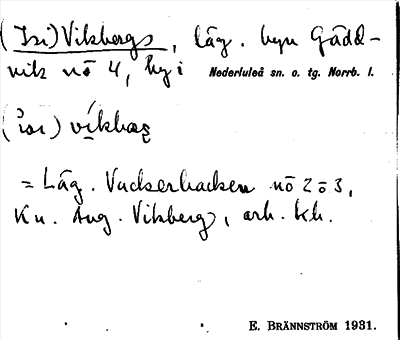 (Isi)Vikbergs, läg. byn Gädd-
vik nō 4, hg i Nederluleå sn. o. tg. Norrb. l.
= Läg. Vackerbacken nō 2 o 3,
Kn. Aug. Vikberg, arb. kh.
E. BRÄNNSTRÖM 1931.